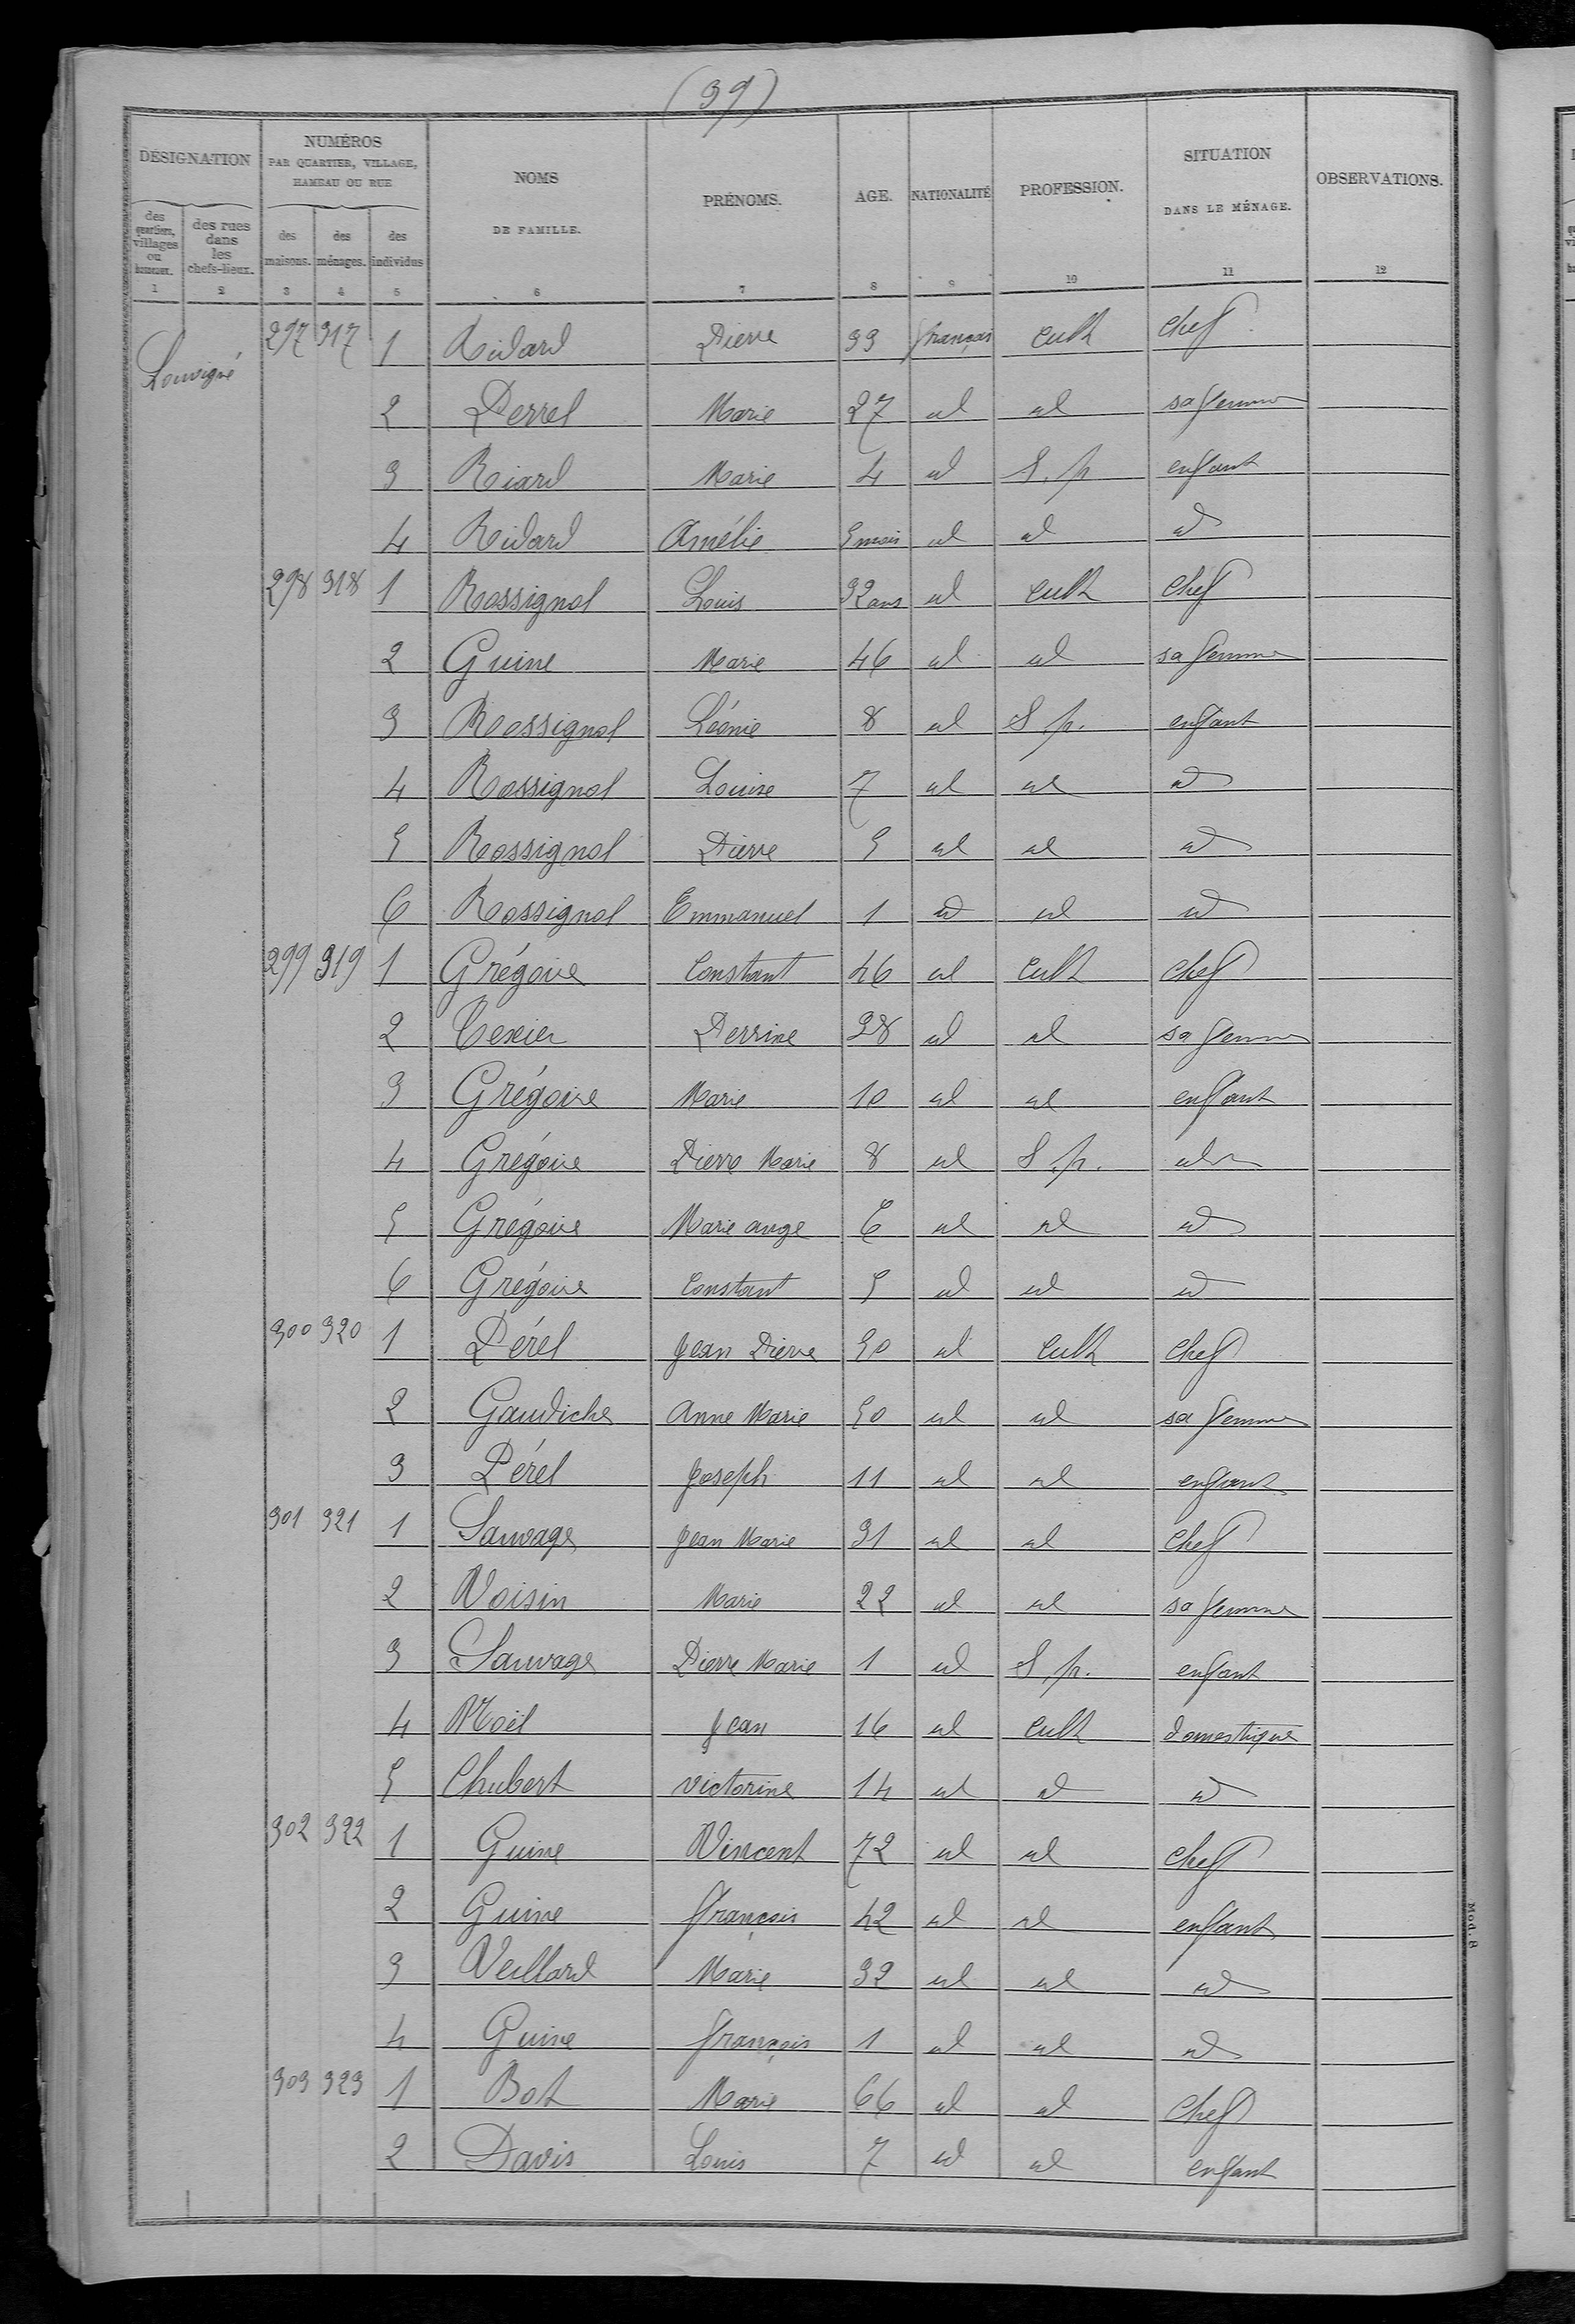 (39)
DÉSIGNATION
NUMÉROS
PAR QUARTIER, VILLAGE, HAMEAU OU RUE
NOMS DE FAMILLE.
PRÉNOMS.
AGE.
NATIONALITÉ
PROFESSION.
SITUATION DANS LE MÉNAGE.
OBSERVATIONS.
des quartiers, villages ou hameaux.
des rues dans les chefs-lieux.
des maisons.
des ménages.
des individus
1 2 3 4 5 6 7 8 9 10 11 12
Louvigné
297 317 1 Ridard Pierre 33 français cult chef
2 Perrel Marie 27 id id sa femme
3 Riard Marie 4 id S. p enfant
4 Ridard Amélie 5 mois id id id
298 318 1 Rossignol Louis 32 ans id cult chef
2 Guine Marie 46 id id sa femme
3 Rossignol Léonie 8 id S. p. enfant
4 Rossignol Louise 7 id id id
5 Rossignol Pierre 5 id id id
6 Rossignol Emmanuel 1 id id id
299 319 1 Grégoire Constant 46 id cult chef
2 Texier Perrine 38 id id sa femme
3 Grégoire Marie 10 id id enfant
4 Grégoire Pierre Marie 8 id S. p. id
5 Grégoire Marie ange 6 id id id
6 Grégoire Constant 5 id id id
300 320 1 Pérel Jean Pierre 50 id cult chef
2 Gaudiche Anne Marie 50 id id sa femme
3 Pérel Joseph 11 id id enfant
301 321 1 Sauvage Jean Marie 31 id id chef
2 Voisin Marie 22 id id sa femme
3 Sauvage Pierre Marie 1 id S. p. enfant
4 Noël Jean 16 id cult domestique
5 Chubert victorine 14 id id id
302 322 1 Guine Vincent 72 id id chef
2 Guine françois 42 id id enfant
3 Veillard Marie 32 id id id
4 Guine françois 1 id id id
303 323 1 Bot Marie 66 id id chef
2 Davis Louis 7 id id enfant
Mod. 8